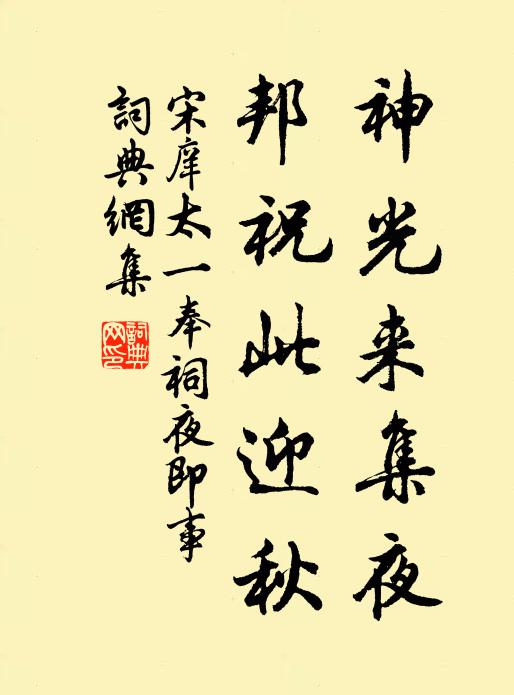 神光来集夜
邦祝此迎秋
宋庠太一奉祠夜即事
詞典網集
詞典
网印